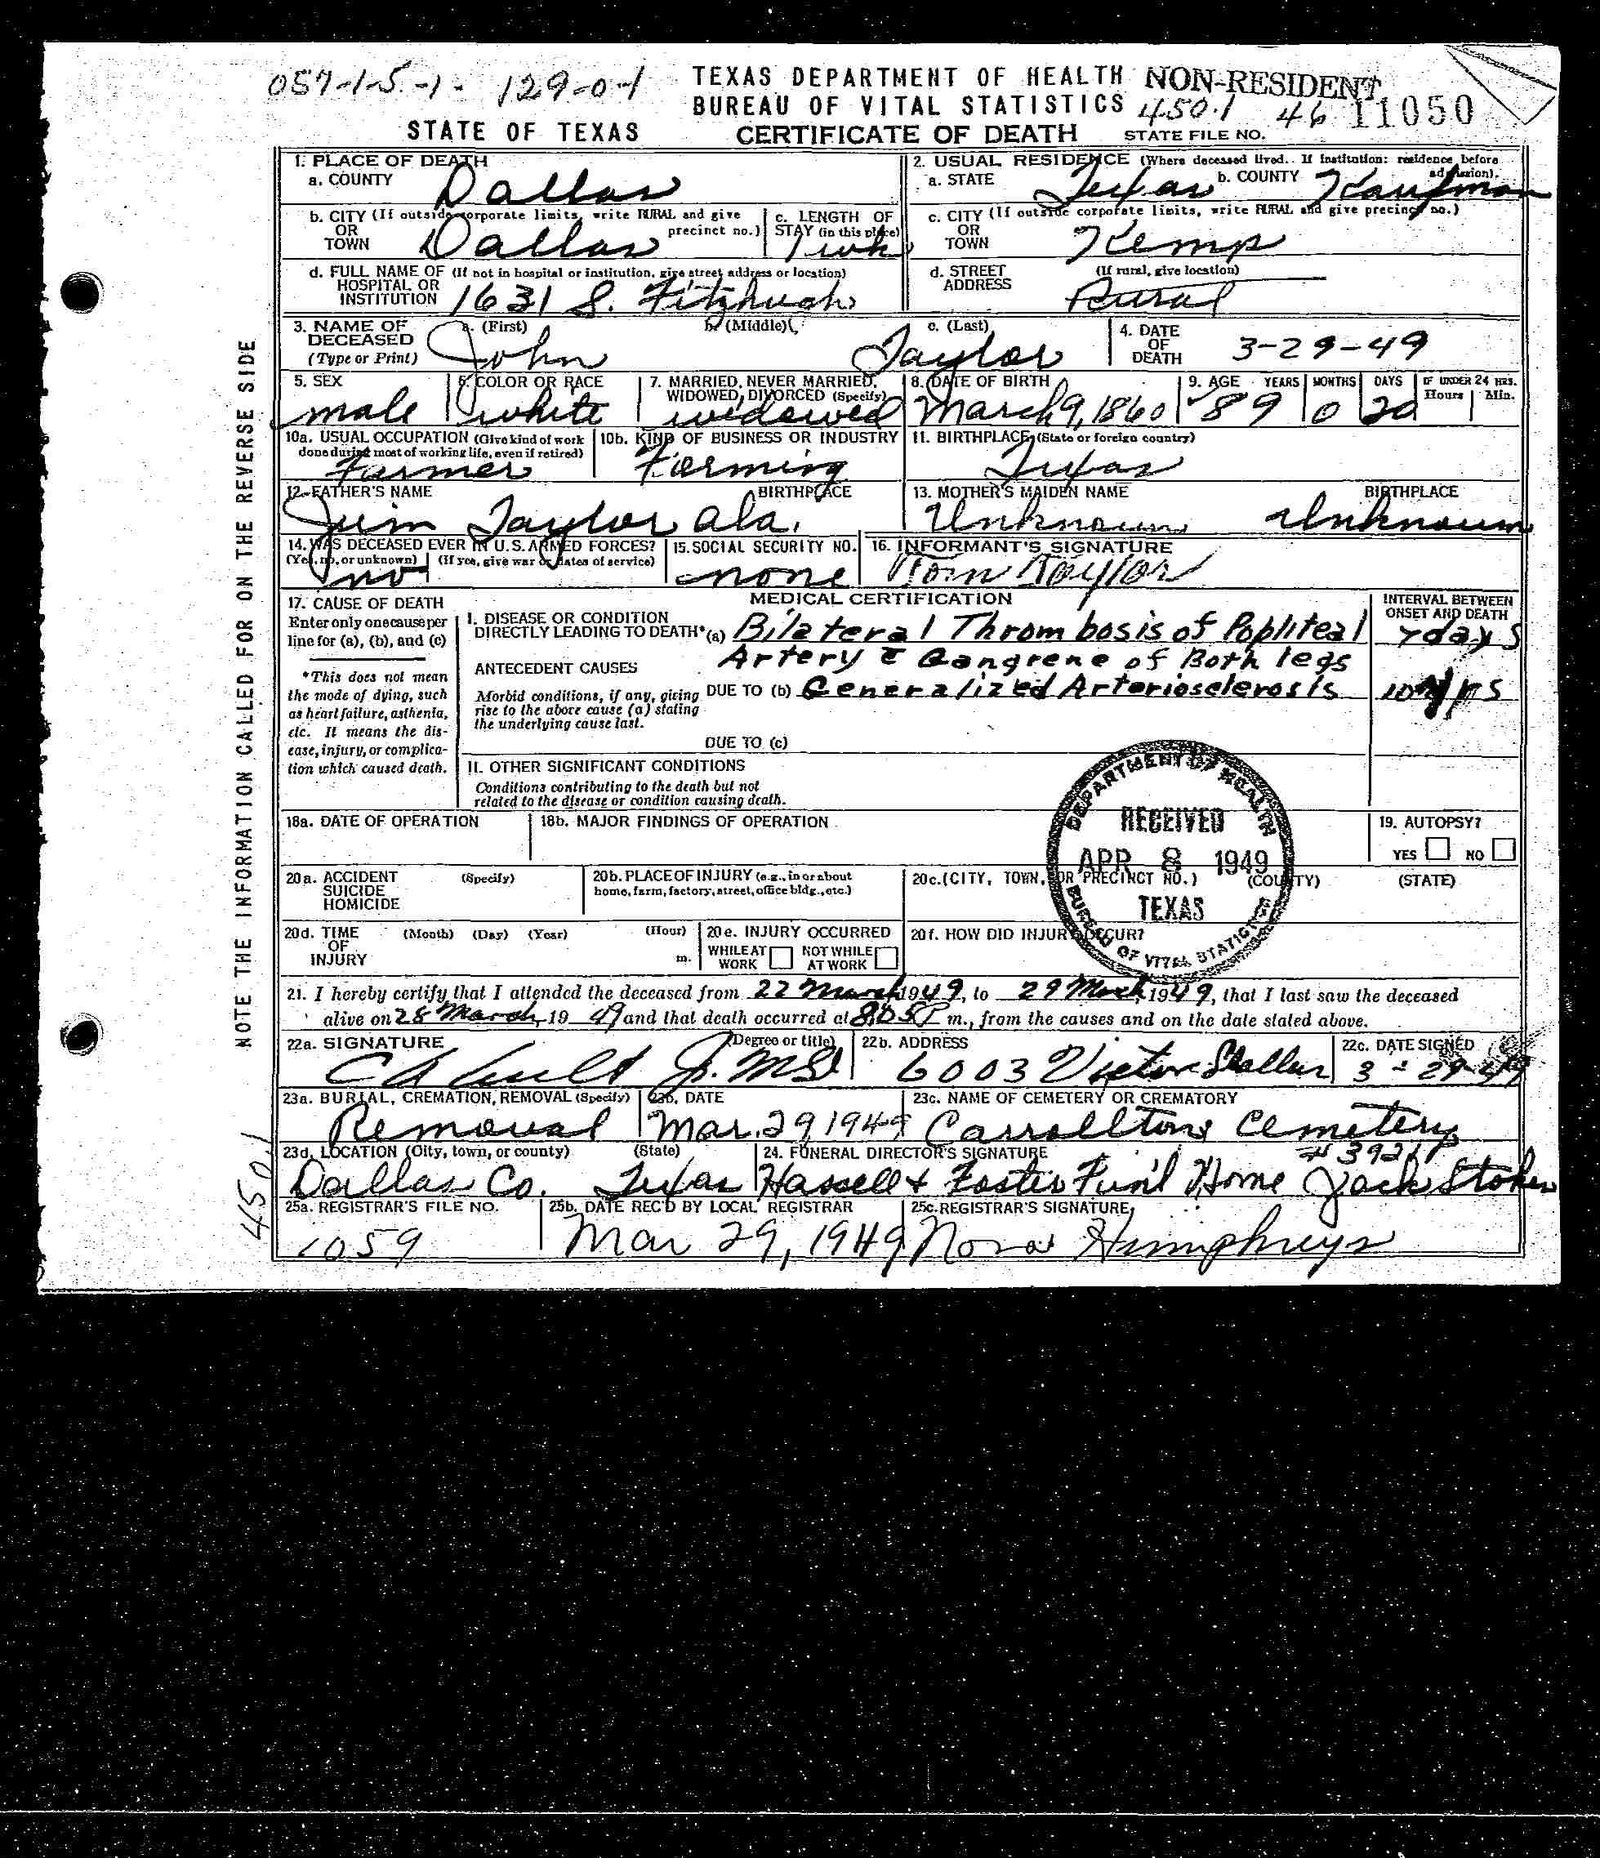 057-1-5-1- 129-0-1
TEXAS DEPARTMENT OF HEALTH NON-RESIDENT
BUREAU OF VITAL STATISTICS 450.1 46 11050
STATE OF TEXAS CERTIFICATE OF DEATH STATE FILE NO.
1. PLACE OF DEATH
a. COUNTY Dallas
2. USUAL RESIDENCE (Where deceased lived. If institution: residence before admission).
a. STATE Texas b. COUNTY Kaufman
b. CITY (If outside corporate limits, write RURAL and give precinct no.)
OR
TOWN Dallas
c. LENGTH OF
STAY (in this place) 1 wk
c. CITY (If outside corporate limits, write RURAL and give precinct no.)
OR
TOWN Kemp
d. FULL NAME OF (If not in hospital or institution, give street address or location)
HOSPITAL OR
INSTITUTION 1631 S. Fitzhugh
d. STREET (If rural, give location)
ADDRESS Rural
3. NAME OF DECEASED (Type or Print) a. (First) b. (Middle) c. (Last)
John Taylor
4. DATE OF DEATH 3-29-49
5. SEX male
6. COLOR OR RACE white
7. MARRIED, NEVER MARRIED, WIDOWED, DIVORCED (Specify) widowed
8. DATE OF BIRTH March 9, 1860
9. AGE YEARS MONTHS DAYS IF UNDER 24 HRS. Hours Min.
89 0 20
10a. USUAL OCCUPATION (Give kind of work done during most of working life, even if retired) Farmer
10b. KIND OF BUSINESS OR INDUSTRY Farming
11. BIRTHPLACE (State or foreign country) Texas
12. FATHER'S NAME BIRTHPLACE
Jim Taylor Ala.
13. MOTHER'S MAIDEN NAME BIRTHPLACE
Unknown Unknown
14. WAS DECEASED EVER IN U.S. ARMED FORCES?
(Yes, no, or unknown) (If yes, give war or dates of service)
no
15. SOCIAL SECURITY NO. none
16. INFORMANT'S SIGNATURE Tom Taylor
MEDICAL CERTIFICATION
17. CAUSE OF DEATH
Enter only one cause per
line for (a), (b), and (c)
*This does not mean
the mode of dying, such
as heart failure, asthenia,
etc. It means the dis-
ease, injury, or complica-
tion which caused death.
INTERVAL BETWEEN
ONSET AND DEATH
I. DISEASE OR CONDITION
DIRECTLY LEADING TO DEATH*(a) Bilateral Thrombosis of Popliteal 7 days
Artery c̄ Gangrene of Both legs
ANTECEDENT CAUSES
Morbid conditions, if any, giving
rise to the above cause (a) stating
the underlying cause last.
DUE TO (b) Generalized Arteriosclerosis 10 yrs
DUE TO (c)
II. OTHER SIGNIFICANT CONDITIONS
Conditions contributing to the death but not
related to the disease or condition causing death.
DEPARTMENT OF HEALTH
RECEIVED
APR 8 1949
TEXAS
BUREAU OF VITAL STATISTICS
18a. DATE OF OPERATION
18b. MAJOR FINDINGS OF OPERATION
19. AUTOPSY?
YES NO
20a. ACCIDENT (Specify)
SUICIDE
HOMICIDE
20b. PLACE OF INJURY (e.g., in or about
home, farm, factory, street, office bldg., etc.)
20c. (CITY, TOWN, OR PRECINCT NO.) (COUNTY) (STATE)
20d. TIME (Month) (Day) (Year) (Hour)
OF
INJURY m.
20e. INJURY OCCURRED
WHILE AT WORK NOT WHILE AT WORK
20f. HOW DID INJURY OCCUR?
21. I hereby certify that I attended the deceased from 22 March, 1949, to 29 March, 1949, that I last saw the deceased
alive on 28 March, 1949 and that death occurred at 8:05P m., from the causes and on the date stated above.
22a. SIGNATURE (Degree or title)
Jr. MD
22b. ADDRESS 6003 Victor Dallas
22c. DATE SIGNED 3-29-49
23a. BURIAL, CREMATION, REMOVAL (Specify) Removal
23b. DATE Mar. 29, 1949
23c. NAME OF CEMETERY OR CREMATORY Carrollton Cemetery
23d. LOCATION (City, town, or county) (State)
Dallas Co. Texas
24. FUNERAL DIRECTOR'S SIGNATURE
Hassell & Foster Fun'l Home Jack Stokes
25a. REGISTRAR'S FILE NO. 1059
25b. DATE REC'D BY LOCAL REGISTRAR Mar 29, 1949
25c. REGISTRAR'S SIGNATURE Nora Humphreys
NOTE THE INFORMATION CALLED FOR ON THE REVERSE SIDE
450.1